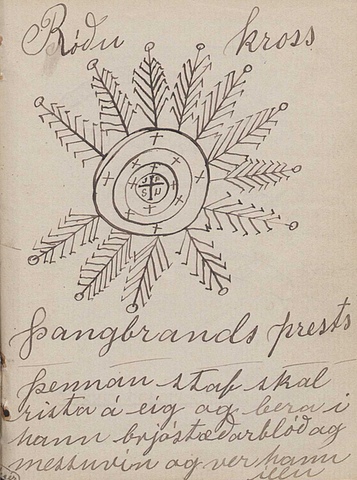 Róðu kross
J F
S H
Þangbrands prests
Þennan staf skal
rista á eig og bera í
hann brjóstæðarblóð og
messuvín og ver hann
illu